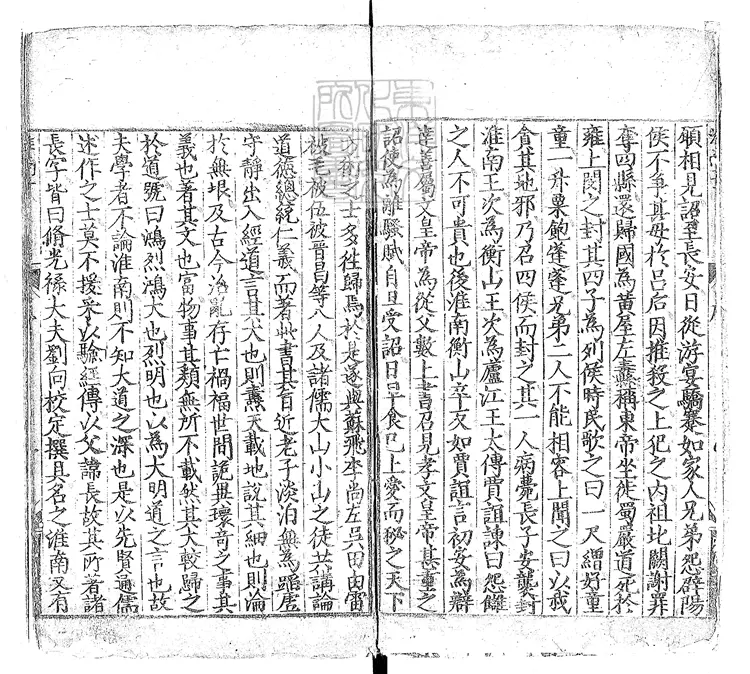 願相見詔至長安日從游宴驕蹇如家人兄弟怨辟陽
侯不爭其母於呂后因推殺之上非之肉袒北闕謝罪
奪四縣還歸國為黃屋左纛稱東帝坐徙蜀嚴道死於
雍上閔之封其四子為列侯時民歌之曰一尺繒好童
童一升粟飽蓬蓬兄弟二人不能相容上聞之曰以我
貪其地邪乃召四侯而封之其一人病薨長子安襲封
淮南王次為衡山王次為廬江王太傅賈誼諫曰怨讎
之人不可貴也後淮南衡山卒反如賈誼言初安為辯
達善屬文皇帝為從父數上書召見孝文皇帝甚重之
詔使為離騷賦自旦受詔日早食已上愛而秘之天下
方術之士多往歸焉於是遂與蘇飛李尚左吳田由雷
被毛被伍被晉昌等八人及諸儒大山小山之徒共講論
道德總統仁義而著此書其旨近老子淡泊無為蹈虛
守靜出入經道言其大也則燾天載地說其細也則淪
於無垠及古今治亂存亡禍福世間詭異瓌奇之事其
義也著其文也富物事其類無所不載然其大較歸之
於道號曰鴻烈鴻大也烈明也以為大明道之言也故
夫學者不論淮南則不知大道之深也是以先賢通儒
述作之士莫不援采以驗經傳以父諱長故其所著諸
長字皆曰脩光祿大夫劉向校定撰具名之淮南又有